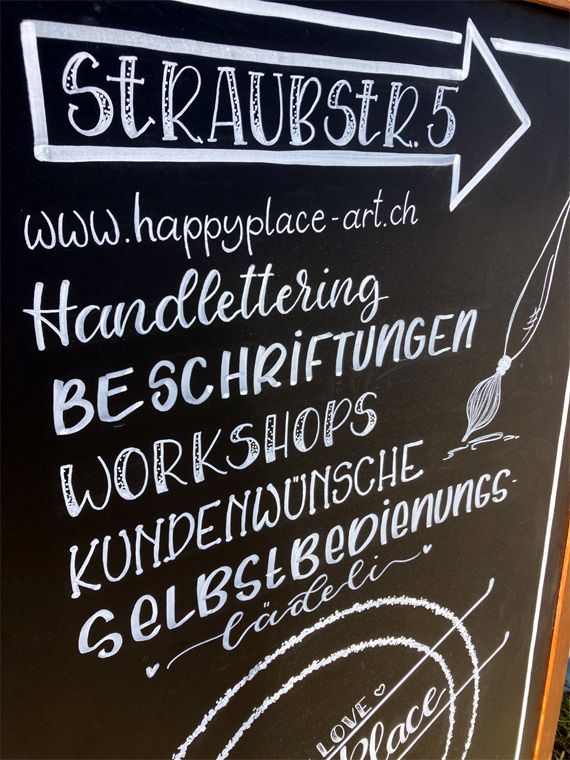 StRAUBStR. 5
www.happyplace-art.ch
Handlettering
BESCHRiFTUNGEN
WORKSHOPS
KUNDENWÜNSCHE
SELBStBEDiENUNGS-
lädeli
LOVE
place